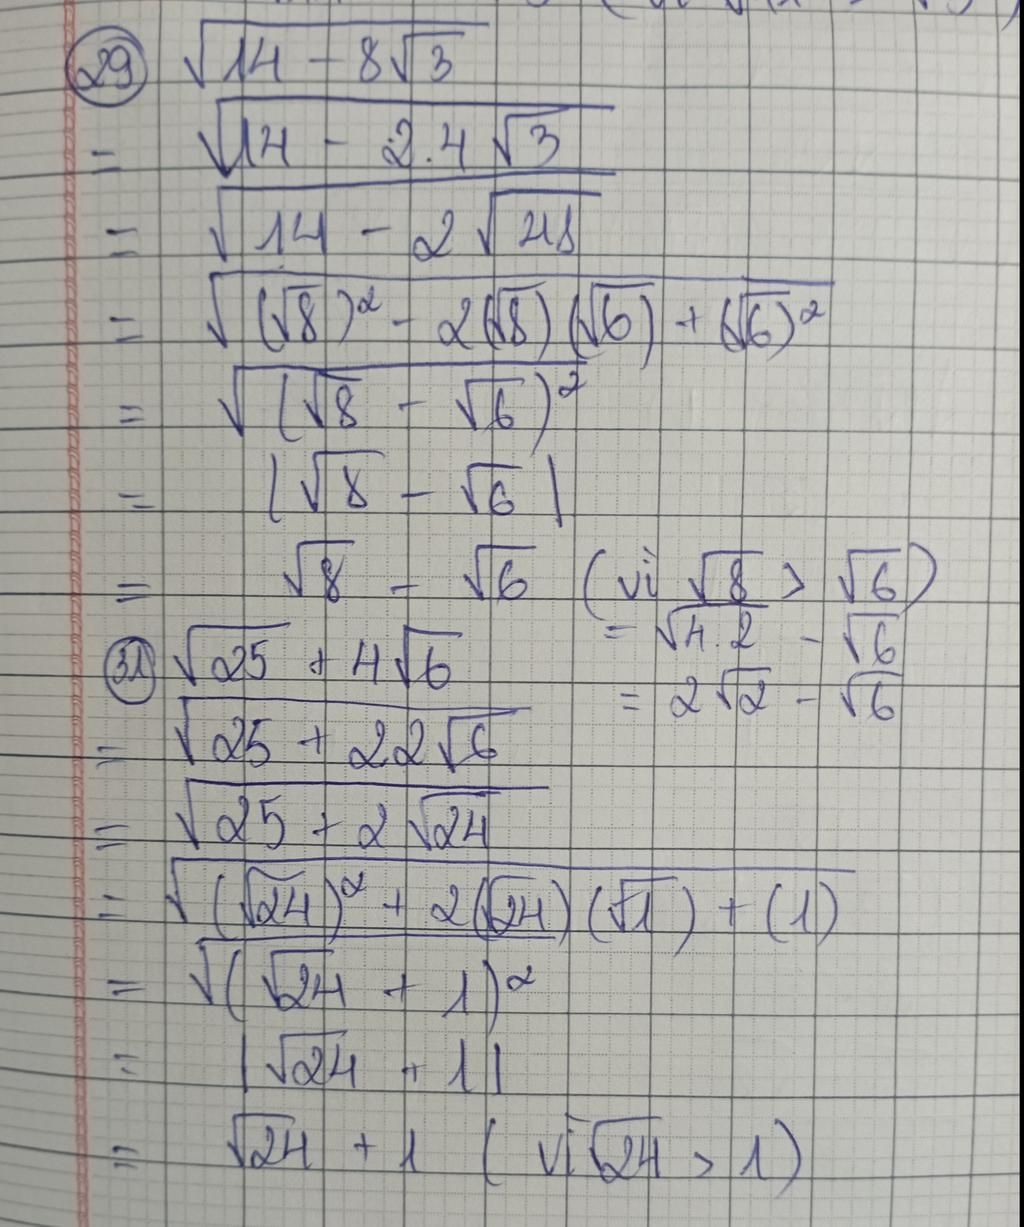 29 √(14 - 8√3)
= √(14 - 2.4√3)
= √(14 - 2√48)
= √((√8)² - 2(√8)(√6) + (√6)²)
= √((√8 - √6)²)
= |√8 - √6|
= √8 - √6 (vì √8 > √6)
= √4.2 - √6
= 2√2 - √6
31 √25 + 4√6
= √(25 + 22√6)
= √(25 + 2√24)
= √((√24)² + 2(√24)(√1) + (1))
= √((√24 + 1)²)
= |√24 + 1|
= √24 + 1 (vì √24 > 1)